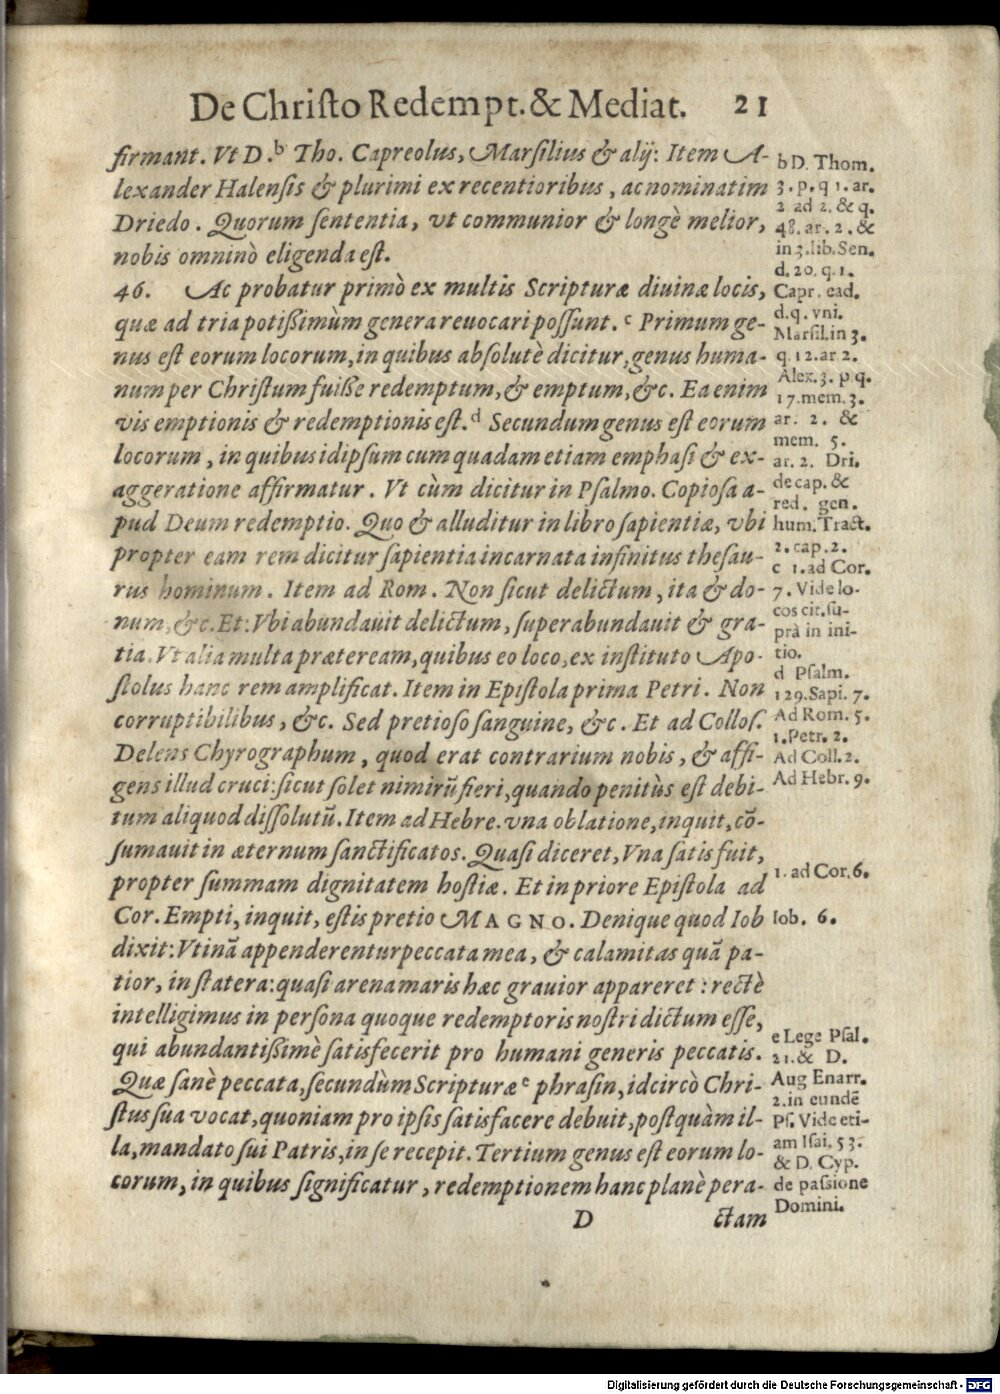 De Chriſto Redempt. & Mediat. 21
firmant. Vt D.ᵇ Tho. Capreolus, Marſilius & alij: Item A-
lexander Halenſis & plurimi ex recentioribus, ac nominatim
Driedo. Quorum ſententia, vt communior & longè melior,
nobis omninò eligenda eſt.
46. Ac probatur primò ex multis Scripturæ diuinæ locis,
quæ ad tria potißimùm genera reuocari poſſunt. ᶜ Primum ge-
nus eſt eorum locorum, in quibus abſolutè dicitur, genus huma-
num per Chriſtum fuiße redemptum, & emptum, &c. Ea enim
vis emptionis & redemptionis eſt. ᵈ Secundum genus eſt eorum
locorum, in quibus idipſum cum quadam etiam emphaſi & ex-
aggeratione affirmatur. Vt cùm dicitur in Pſalmo. Copioſa a-
pud Deum redemptio. Quo & alluditur in libro ſapientiæ, vbi
propter eam rem dicitur ſapientia incarnata infinitus theſau-
rus hominum. Item ad Rom. Non ſicut delictum, ita & do-
num, &c. Et: Vbi abundauit delictum, ſuperabundauit & gra-
tia. Vt alia multa præteream, quibus eo loco, ex inſtituto Apo-
ſtolus hanc rem amplificat. Item in Epiſtola prima Petri. Non
corruptibilibus, &c. Sed pretioſo ſanguine, &c. Et ad Colloſ.
Delens Chyrographum, quod erat contrarium nobis, & affi-
gens illud cruci: ſicut ſolet nimirũ fieri, quando penitùs eſt debi-
tum aliquod diſſolutũ. Item ad Hebre. vna oblatione, inquit, cõ-
ſumauit in æternum ſanctificatos. Quaſi diceret, Vna ſatis fuit,
propter ſummam dignitatem hoſtiæ. Et in priore Epiſtola ad
Cor. Empti, inquit, eſtis pretio MAGNO. Denique quod Iob
dixit: Vtinã appenderentur peccata mea, & calamitas quã pa-
tior, in ſtatera: quaſi arena maris hæc grauior appareret: rectè
intelligimus in perſona quoque redemptoris noſtri dictum eſſe,
qui abundantißimè ſatisfecerit pro humani generis peccatis.
Quæ ſanè peccata, ſecundùm Scripturæ ᵉ phraſin, idcircò Chri-
ſtus ſua vocat, quoniam pro ipſis ſatisfacere debuit, poſtquàm il-
la, mandato ſui Patris, in ſe recepit. Tertium genus eſt eorum lo-
corum, in quibus ſignificatur, redemptionem hanc planè pera-
D ctam
b D. Thom.
3. p. q 1. ar.
2 ad 2. & q.
48. ar. 2. &
in 3. lib. Sen.
d. 20. q. 1.
Capr. ead.
d. q. vni.
Marſil. in 3.
q. 12. ar 2.
Alex. 3. p q.
17. mem. 3.
ar. 2. &
mem. 5.
ar. 2. Dri.
de cap. &
red. gen.
hum. Tract.
2. cap. 2.
c 1. ad Cor.
7. Vide lo-
cos cit. ſu-
prà in ini-
tio.
d Pſalm.
129. Sapi. 7.
Ad Rom. 5.
1. Petr. 2.
Ad Coll. 2.
Ad Hebr. 9.
1. ad Cor. 6.
Iob. 6.
e Lege Pſal.
21. & D.
Aug Enarr.
2. in eundẽ
Pſ. Vide eti-
am Iſai. 53.
& D. Cyp.
de paſsione
Domini.
Digitalisierung gefördert durch die Deutsche Forschungsgemeinschaft - DFG